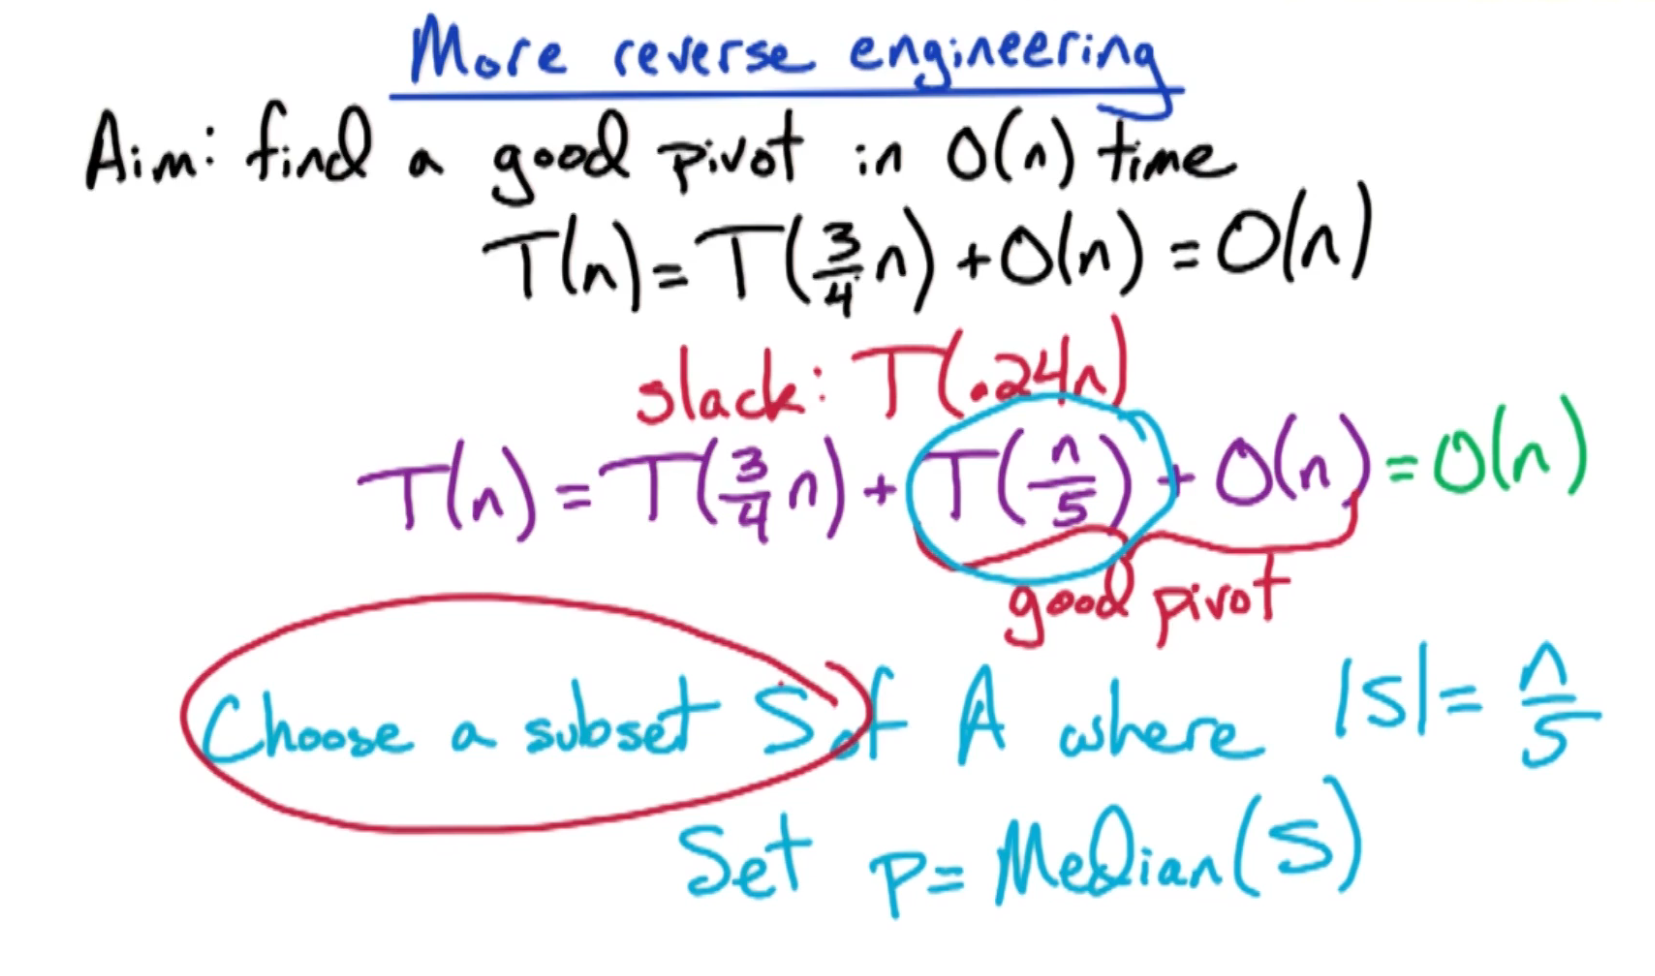 More reverse engineering
Aim: find a good pivot in O(n) time
T(n) = T(3/4 n) + O(n) = O(n)
slack: T(.24n)
T(n) = T(3/4 n) + T(n/5) + O(n) = O(n)
good pivot
Choose a subset S of A where |S| = n/5
Set p = Median(S)